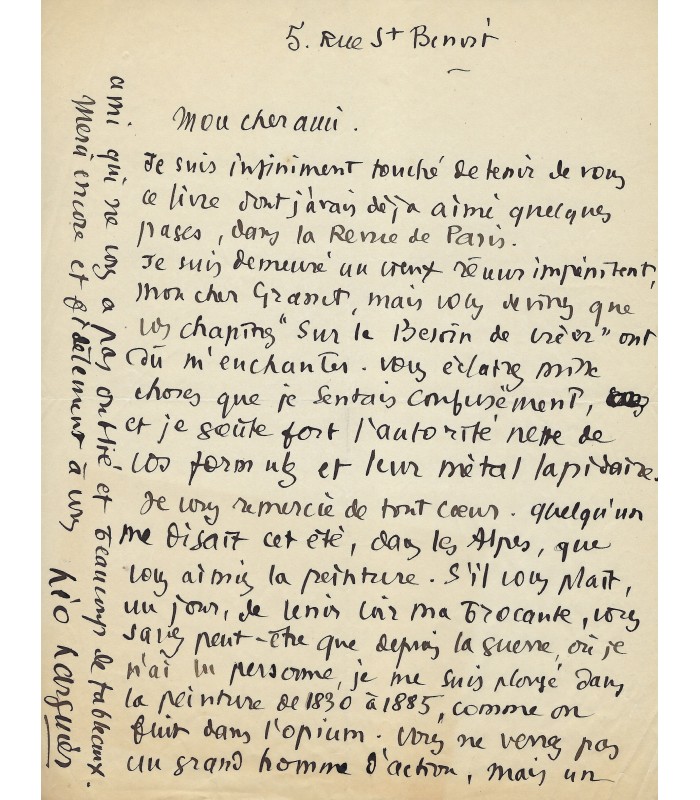 5. Rue St Benoit
Mon cher ami.
Je suis infiniment touché de tenir de vous
ce livre dont j'avais déjà aimé quelques
pages, dans la Revue de Paris.
Je suis demeuré un vieux rêveur impénitent,
mon cher Grasset, mais vous devinez que
vos chapitres "Sur le Besoin de créer" ont
dû m'enchanter. vous éclairez mille
choses que je sentais confusément,
et je goûte fort l'autorité nette de
vos formules et leur métal lapidaire.
Je vous remercie de tout cœur. quelqu'un
me disait cet été, dans les Alpes, que
vous aimiez la peinture. S'il vous plait,
un jour, de venir voir ma Brocante, vous
savez peut-être que depuis la guerre, où je
n'ai vu personne, je me suis plongé dans
la peinture de 1830 à 1885, comme on
fuit dans l'opium. vous ne verrez pas
un grand homme d'action, mais un
ami qui ne vous a pas oublié et beaucoup de tableaux.
Merci encore et fidèlement à vous
Léo Larguier